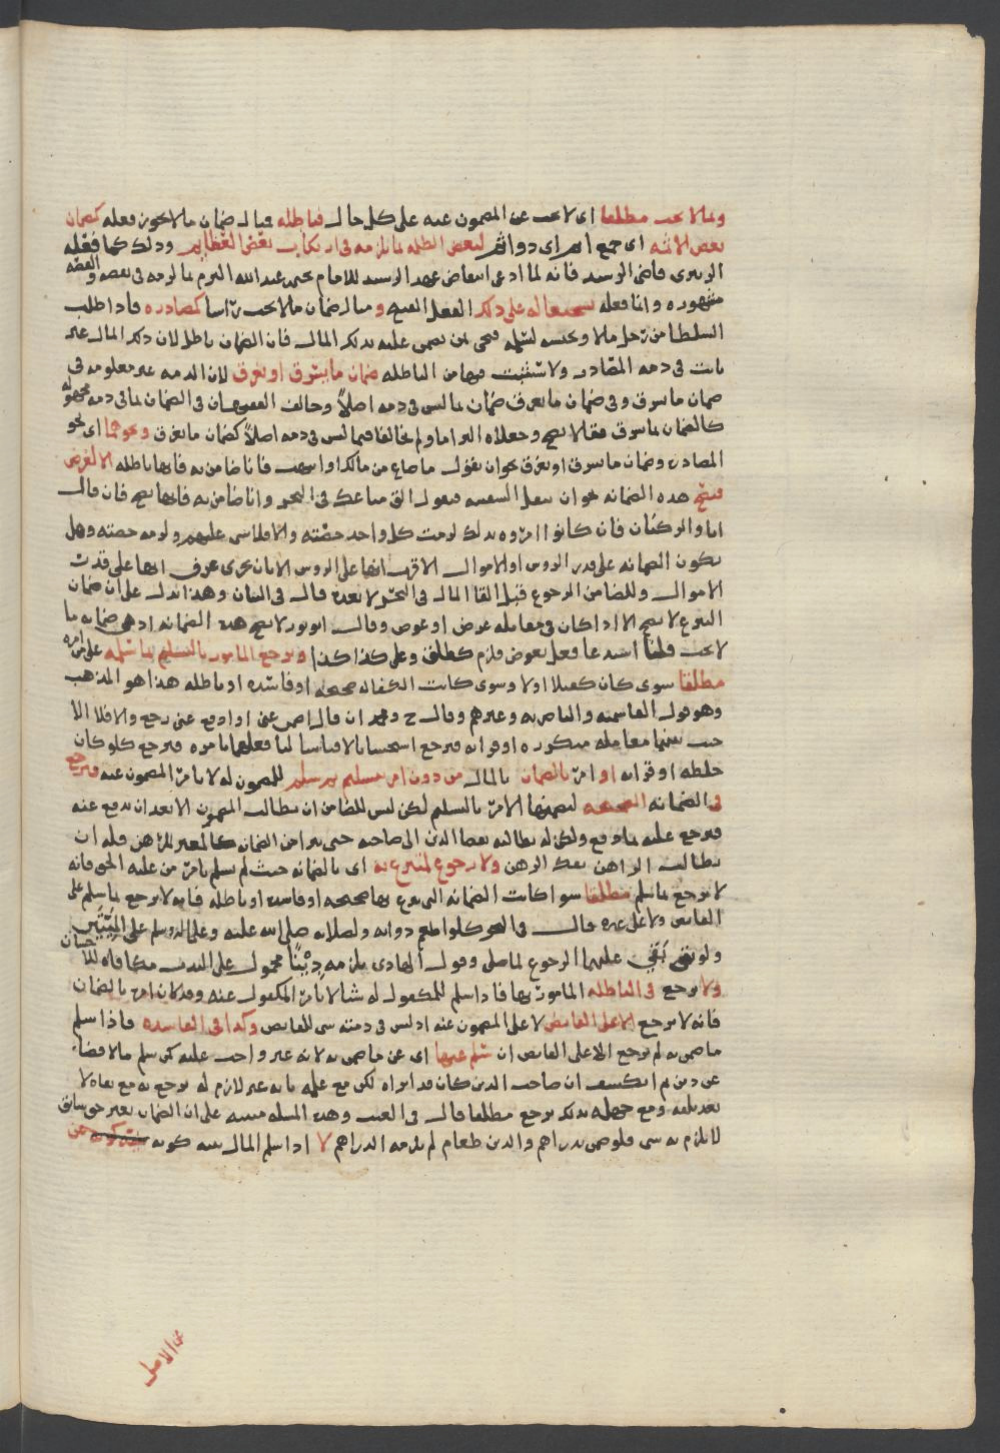 وبما لا يجب مطلقا اى لا يجب عن المضمون عنه على كل حال فباطله مثال ضمان ما لا يجوز فعله كضمان
بعض الائمه اى جمع امر اى دوا لبعض الظلمه لما يلزمه فى ارتكاب بعض العظايم وذلك كما فعله
قاضى الرسد فانه لما ادعى الامام عبد الله التزم بما لزمه فى والقصه
مشهوره وانما فعله على ذلك الفعل القبيح ومثال ضمان ما لا يجب راسا كمصادره فاذا طلب
السلطان من رجل مالا وحبسه لتسليمه فجى من يضمن عليه بذلك المال فان الضمان باطل لان ذلك المال غير
ثابت فى ذمه المصادر ولا تستثبت فيها من الباطله ضمان ما يسرق او يغرق لان الذمه غير معلومه فى
ضمان ما سرق وفى ضمان ما يغرق ضمان بما ليس فى ذمه اصلا وخالف الفقيهان فى الضمان بما فى ذمه مجهوله
كالضمان بما سرق فقالا يصح وجعلاه التزاما ولم يخالفا فيما ليس فى ذمه اصلا كضمان ما يغرق ونحوهما اى نحو
المصادره وضمان ما سرق او يغرق نحو ان يقول ما ضاع من مالك او انتهب فانا ضامن به فانها باطله الا لغرض
فيصح هذه الضمانه نحو ان تثقل السفينه فيقول الق متاعك فى البحر وانا ضامن به فانها تصح فان قال
انا والركبان فان كانوا امروه بذلك لزمت كل واحد حصته والا فلا شى عليهم ولزمه حصته وهل
تكون الضمانه على قدر الروس او الاموال الاقرب انها على الروس الا ان يجرى عرف انها على قدر
الاموال وللضامن الرجوع قبل القا المال فى البحر لا بعده قال فى البيان وهذا يدل على ان ضمان
التبرع لا يصح الا اذا كان فى مقابله عرض او عوض وقال ابو ثور لا يصح هذه الضمانه اذ هى ضمانه ما
لا يجب قلنا استدعا فعل بعوض فلزم كطلق وعلى كذا كذا ويرجع المامور بالتسليم بما سلمه على من امره
مطلقا سوى كان كفيلا اولا وسوى كانت الكفاله صحيحه او فاسده او باطله هذا هو المذهب
وهو قول القاسميه والناصريه وغيرهم وقال ح ومحمد ان قال اضمن عنى او ادفع عنى رجع والا فلا الا
حيث بينهما معامله متكرره او قرابه فيرجع استحسانا لا قياسا لنا فعلهما بامره فيرجع كلو كان
خلطه او قرابه او امر بالضمان بالمال من دون امر بتسليم ثم سلم للمضمون له لا بامر المضمون عنه فيرجع
فى الضمانه الصحيحه لتضمنها الامر بالتسليم لكن ليس للضامن ان يطالب المضمون الا بعد ان يدفع عنه
فيرجع عليه بما دفع ولكن له مطالبته بقضا الدين الى صاحبه حتى يبرا من الضمان كالمعير للرهن فله ان
يطالب الراهن بفك الرهن ولا رجوع لمتبرع به اى بالضمانه حيث لم يسلم بامر من عليه الحق فانه
لا يرجع بما سلم مطلقا سوا كانت الضمانه التى تبرع بها صحيحه او فاسده او باطله فانه لا يرجع بما سلم على
القابض ولا على غيره قال فى البحر كلو اطعم دوابه ولصلاته صلى الله عليه وعلى اله وسلم على الميتين
ولو بقى عليهما الرجوع لما صلى وقول الهادى يلزمه ديْنًا محمول على الندب مكافاه للاحسان
ولا يرجع فى الباطله المامور بها فاذا سلم للمكفول له شيا لا بامر المكفول عنه وقد كان امره بالضمان
فانه لا يرجع الا على القابض لا على المضمون عنه اذ ليس فى ذمته شى للقابض وكذا فى الفاسده فاذا سلم
ما ضمن به لم يرجع الا على القابض ان سلم عنها اى عن ما ضمن به لانه غير واجب عليه كمن سلم مالا قضاء
عن دين ثم انكشف ان صاحب الدين كان قد ابراه لكن مع علمه بانه غير لازم له يرجع به مع بقاه لا
بعد تلفه ومع جهله بذلك يرجع مطلقا قال فى الغيث وهذه المسله مبنيه على ان الضمان بغير حق سابق
لا يلزم به شى فلو ضمن بدراهم والدين طعام لم تلزمه الدراهم لا اذا سلم المال بنيه كونه عن
عن الاصل